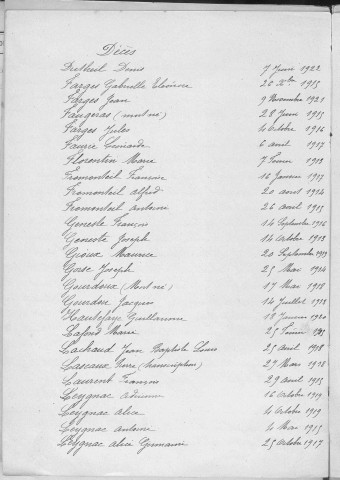 Décès
Dutheil Denis 7 Juin 1922
Farges Gabrielle Etienne 20 Xbre 1915
Farges Jean 9 Novembre 1921
Faugeras (mort né) 28 Juin 1915
Farges Jules 4 Octobre 1916
Faurie Léonarde 6 avril 1917
Florentin Marie 7 Février 1918
Fromonteil François 16 Janvier 1917
Fromonteil Alfred 20 août 1914
Fromonteil Antoine 26 avril 1915
Geneste François 14 Septembre 1916
Geneste Joseph 14 Octobre 1918
Gioux Maurice 20 Septembre 1919
Gorse Joseph 25 Mai 1914
Gourdoux (Mort né) 17 Mai 1918
Gourdon Jacques 14 Juillet 1918
Hautefaye Guillaume 18 Janvier 1920
Lafond Marie 25 Février
Lachaud Jean Baptiste Louis 25 avril 1918
Lascaux Pierre (transcription) 27 Mars 1918
Laurent François 29 avril 1915
Leygnac 16 Octobre 1919
Leygnac Alice 4 Octobre 1919
Leygnac Antoine 4 Mai 1915
Leygnac Alice Germaine 25 Octobre 1917